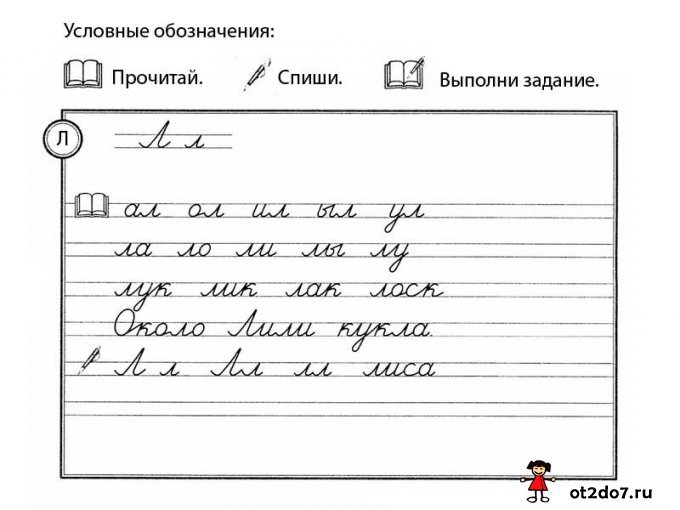 Условные обозначения:
Прочитай. Спиши. Выполни задание.
Л
Л л
ал ол ил ыл ул
ла ло ли лы лу
лук лик лак лоск
Около Лили кукла.
Л л Лл лл лиса
ot2do7.ru